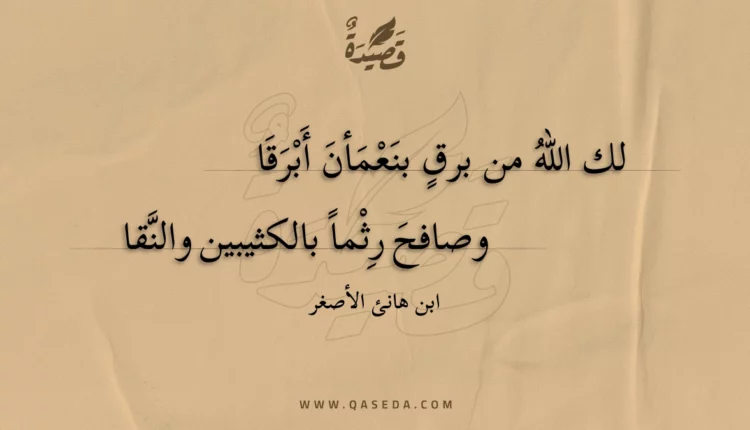 قَصِيْدَةٌ
لك اللهُ من برقٍ بنَعْمَأنَ أَبْرَقَا
وصافحَ رِثْماً بالكثيبين والنَّقا
ابن هانئ الأصغر
WWW.QASEDA.COM